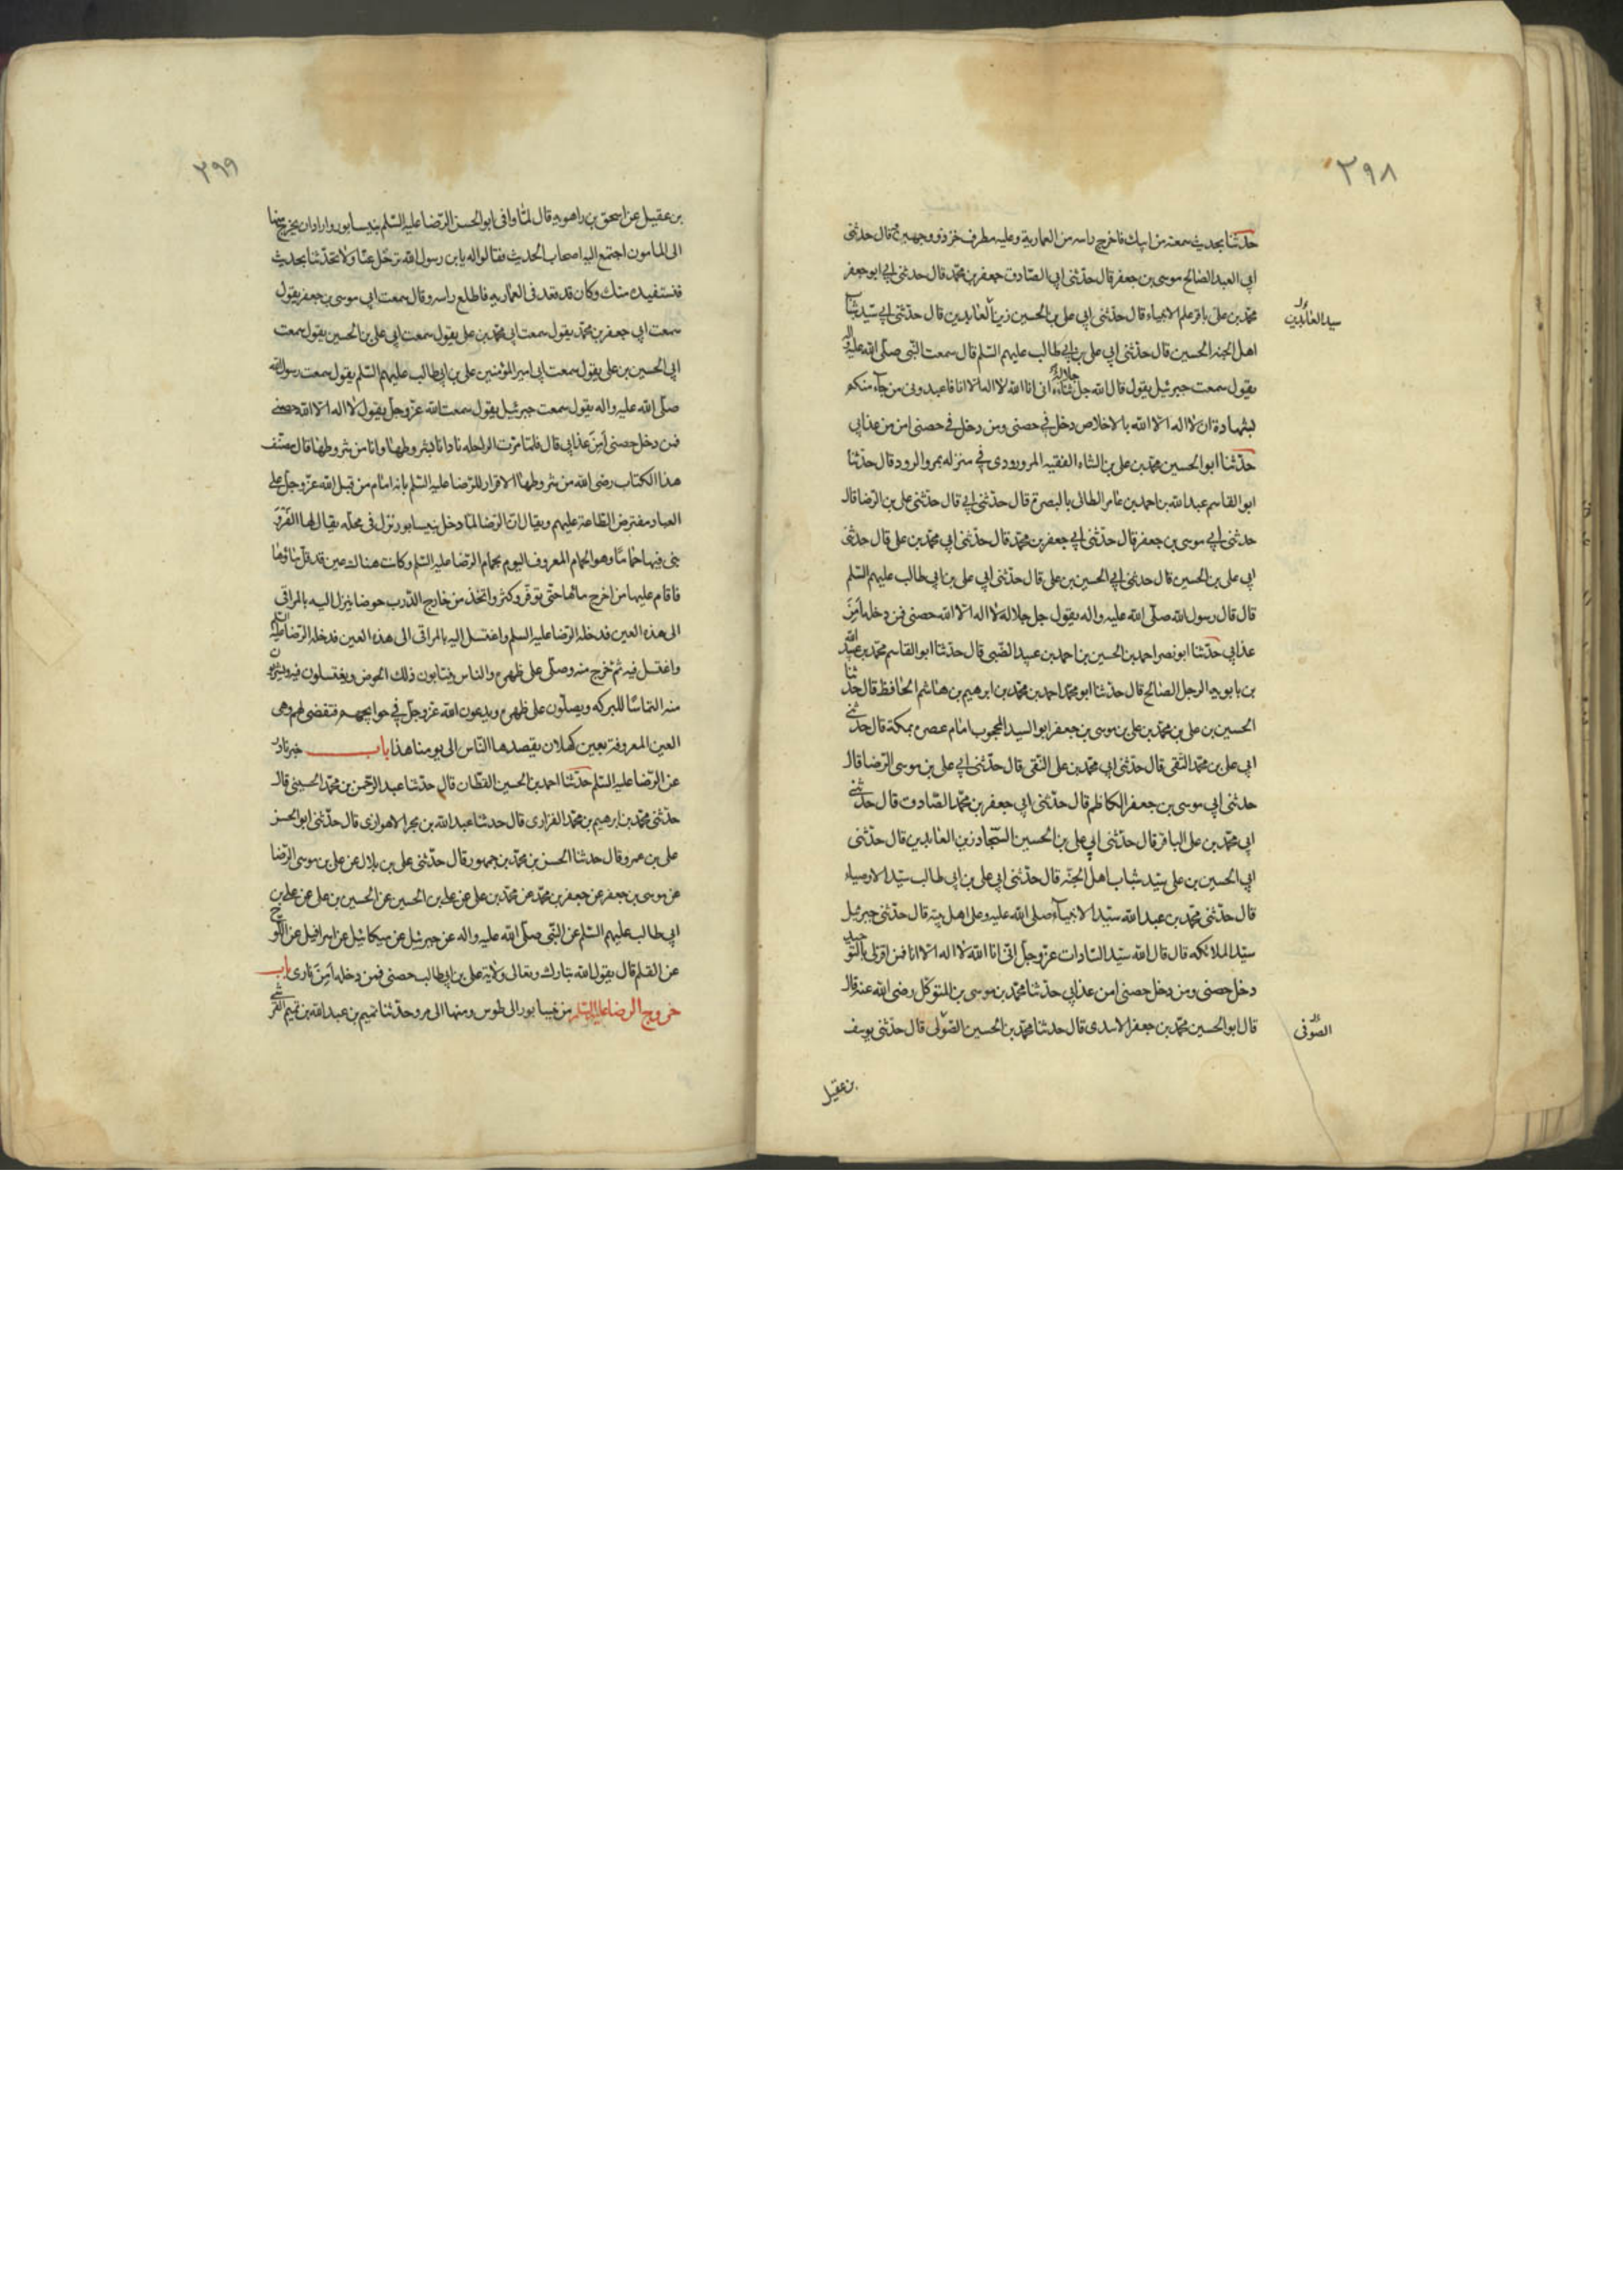 ٢٩٨
حدثنا بحديث سمعته من ابيك فاخرج راسه من العمارية وعليه مطرف خز ذو وجهين قال حدثنى
ابي العبد الصالح موسى بن جعفر قال حدثنى ابي الصادق جعفر بن محمد قال حدثنى ابي ابو جعفر
محمد بن على باقر علم الانبياء قال حدثنى ابي على بن الحسين زين العابدين قال حدثنى ابي سيد شباب
سيد العابدين
اهل الجنه الحسين قال حدثنى ابي على بن ابي طالب عليهم السلم قال سمعت النبى صلى الله عليه واله
يقول سمعت جبرئيل يقول قال الله جل ثناءه جلاله انى انا الله لا اله الا انا فاعبدونى من جاء منكم
بشهادة ان لا اله الا الله بالاخلاص دخل في حصنى ومن دخل في حصنى امن من عذابي
حدثنا ابو الحسين محمد بن على بن الشاه الفقيه المرورودى في منزله بمرو الرود قال حدثنا
ابو القاسم عبد الله بن احمد بن عامر الطائى بالبصرة قال حدثنى ابي قال حدثنى على بن الرضا قال
حدثنى ابي موسى بن جعفر قال حدثنى ابي جعفر بن محمد قال حدثنى ابي محمد بن على قال حدثنى
ابي على بن الحسين قال حدثنى ابي الحسين بن على قال حدثنى ابي على بن ابي طالب عليهم السلم
قال قال رسول الله صلى الله عليه واله يقول جل جلاله لا اله الا الله حصنى فمن دخله امن من
عذابي حدثنا ابو نصر احمد بن الحسين بن احمد بن عبيد الضبى قال حدثنا ابو القاسم محمد بن عبيد الله
بن بابويه الرجل الصالح قال حدثنا ابو محمد احمد بن محمد بن ابرهيم بن هاشم الحافظ قال حدثنا
الحسين بن على بن محمد بن على بن موسى بن جعفر ابو السيد المحجوب امام عصره بمكة قال حدثنى
ابي على بن محمد النقى قال حدثنى ابي محمد بن على التقى قال حدثنى ابي على بن موسى الرضا قال
حدثنى ابي موسى بن جعفر الكاظم قال حدثنى ابي جعفر بن محمد الصادق قال حدثنى
ابي محمد بن على الباقر قال حدثنى ابي على بن الحسين السجاد زين العابدين قال حدثنى
ابي الحسين بن على سيد شباب اهل الجنه قال حدثنى ابي على بن ابي طالب سيد الاوصياء
قال حدثنى محمد بن عبد الله سيد الانبياء صلى الله عليه وعلى اهل بيته قال حدثنى جبرئيل
سيد الملائكه قال قال الله سيد السادات عز وجل انى انا الله لا اله الا انا فمن اقر لى بالتوحيد
دخل حصنى ومن دخل حصنى امن عذابي حدثنا محمد بن موسى بن المتوكل رضى الله عنه قال
قال ابو الحسين محمد بن جعفر الاسدى قال حدثنا محمد بن الحسين الصولى قال حدثنى يوسف
الصوفى
بن عقيل
٢٩٩
بن عقيل عن اسحق بن راهويه قال لما وافى ابو الحسن الرضا عليه السلم بنيسابور واراد ان يخرج منها
الى المامون اجتمع اليه اصحاب الحديث فقالوا له يا بن رسول الله ترحل عنا ولا تحدثنا بحديث
فنستفيده منك وكان قد قعد فى العمارية فاطلع راسه وقال سمعت ابي موسى بن جعفر يقول
سمعت ابي جعفر بن محمد يقول سمعت ابي محمد بن على يقول سمعت ابي على بن الحسين يقول سمعت
ابي الحسين بن على يقول سمعت ابي امير المؤمنين على بن ابي طالب عليهم السلم يقول سمعت رسول الله
صلى الله عليه واله يقول سمعت جبرئيل يقول سمعت الله عز وجل يقول لا اله الا الله حصنى
فمن دخل حصنى امن عذابي قال فلما مرت الراحله نادانا بشروطها وانا من شروطها قال مصنف
هذا الكتاب رضى الله من شروطها الاقرار للرضا عليه السلم بانه امام من قبل الله عز وجل على
العباد مفترض الطاعة عليهم ويقال ان الرضا لما دخل نيسابور نزل فى محله يقال لها
بنى فيها حماما وهو الحمام المعروف اليوم بحمام الرضا عليه السلم وكانت هناك عين قد قل ماؤها
فاقام عليها من اخرج مائها حتى توفر وكثر واتخذ من خارج الدرب حوضا ينزل اليه بالمراقى
الى هذه العين فدخله الرضا عليه السلم واغتسل اليه بالمراقى الى هذه العين فدخله الرضا عليه السلم
واغتسل فيه ثم خرج منه وصلى على ظهره والناس ينتابون ذلك الحوض ويغتسلون فيه ويشربون
منه التماسا للبركه ويصلون على ظهره ويدعون الله عز وجل في حوايجهم فتقضى لهم وهى
العين المعروفة بعين كهلان يقصدها الناس الى يومنا هذا باب خبر نادر
عن الرضا عليه السلم حدثنا احمد بن الحسين القطان قال حدثنا عبد الرحمن بن محمد الحسينى قال
حدثنى محمد بن ابرهيم بن محمد الفزارى قال حدثنا عبد الله بن بحر الاهوازى قال حدثنى ابو الحسن
على بن عمرو قال حدثنا الحسن بن محمد بن جمهور قال حدثنى على بن بلال عن على بن موسى الرضا
عن موسى بن جعفر عن جعفر بن محمد عن محمد بن على عن على بن الحسين عن الحسين بن على عن على بن
ابي طالب عليهم السلم عن النبى صلى الله عليه واله عن جبرئيل عن ميكائيل عن اسرافيل عن اللوح
عن القلم قال يقول الله تبارك وتعالى ولاية على بن ابي طالب حصنى فمن دخله امن نارى باب
خروج الرضا عليه السلم من نيسابور الى طوس ومنها الى مرو حدثنا تميم بن عبد الله بن تميم القرشى